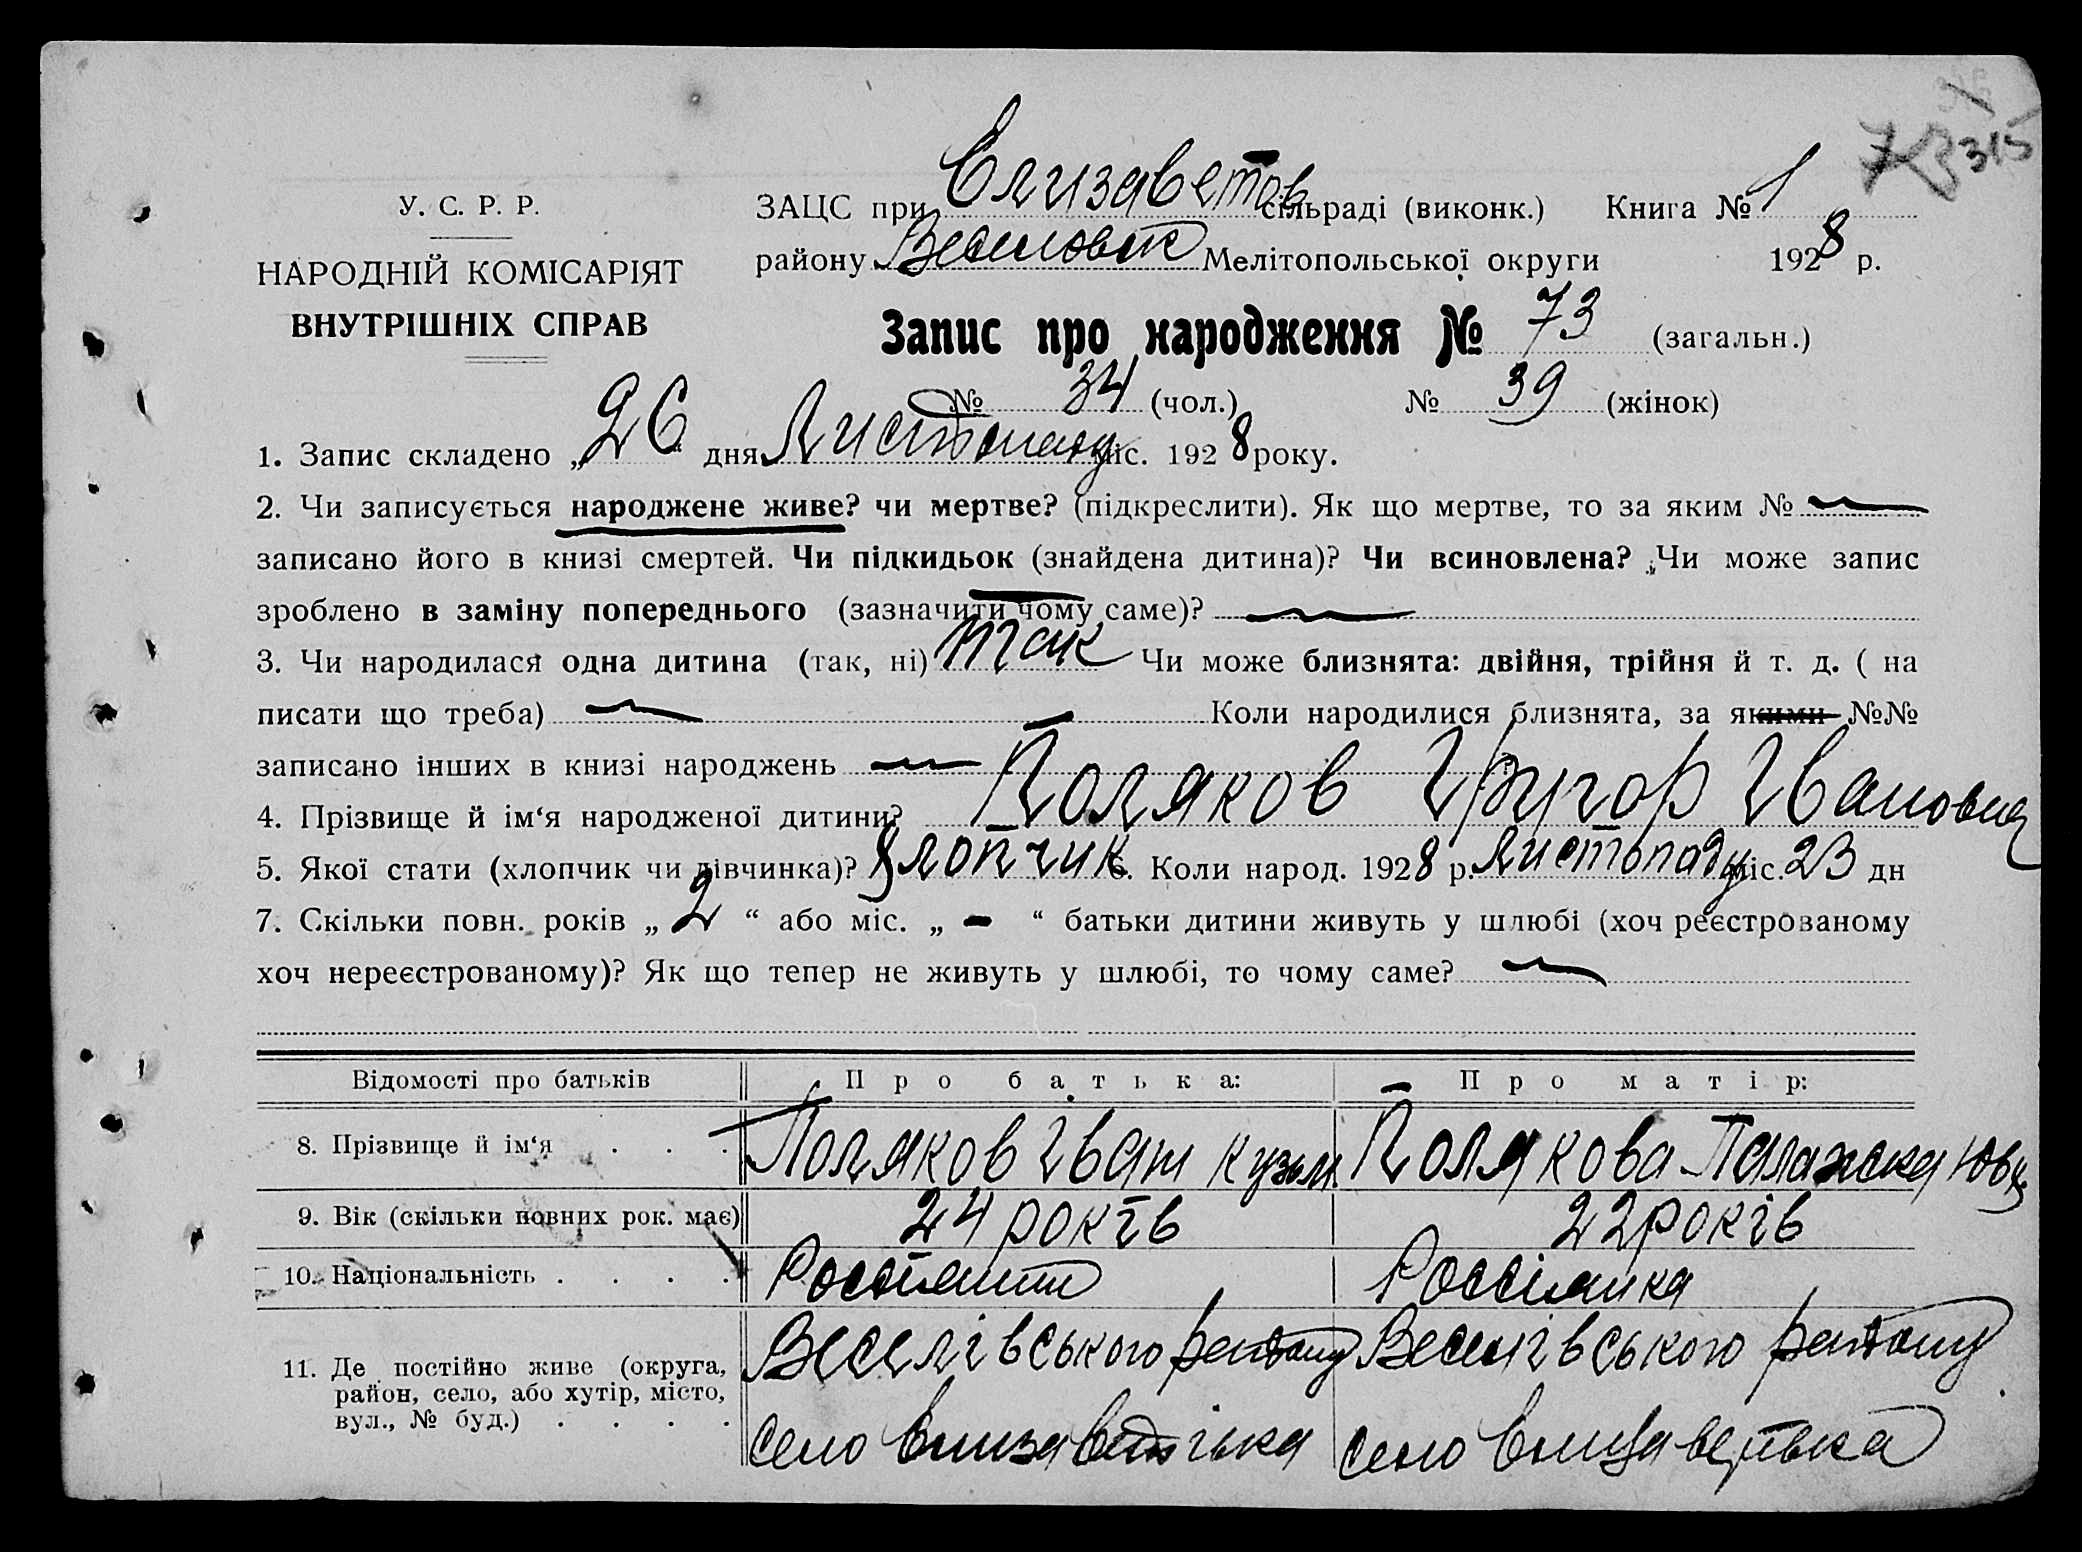 315
У. С. Р. Р.
НАРОДНІЙ КОМІСАРІЯТ
ВНУТРІШНІХ СПРАВ
ЗАЦС при Єлизаветов сільраді (виконк.) Книга № 1
району Веселовск Мелітопольської округи 1928 р.
Запис про народження № 73 (загальн.)
№ 34 (чол.) № 39 (жінок)
1. Запис складено „26“ дня Листопаду міс. 1928 року.
2. Чи записується народжене живе? чи мертве? (підкреслити). Як що мертве, то за яким №
записано його в книзі смертей. Чи підкидьок (знайдена дитина)? Чи всиновлена? Чи може запис
зроблено в заміну попереднього (зазначити чому саме)?
3. Чи народилася одна дитина (так, ні) так Чи може близнята: двійня, трійня й т. д. ( на
писати що треба) Коли народилися близнята, за якими №№
записано інших в книзі народжень
4. Прізвище й ім‘я народженої дитини? Поляков Григор Іванович
5. Якої стати (хлопчик чи дівчинка)? Хлопчик 6. Коли народ. 1928 р. листопаду міс. 23 дн
7. Скільки повн. років „ 2 “ або міс. „ - “ батьки дитини живуть у шлюбі (хоч реєстрованому
хоч нереєстрованому)? Як що тепер не живуть у шлюбі, то чому саме?
Відомості про батьків Про батька: Про матір:
8. Прізвище й ім‘я . . . Поляков Іван Кузьм. Полякова Палажка
9. Вік (скільки повних рок. має) 24 років 22 років
10. Національність . . . . Россіянин Россіянка
11. Де постійно живе (округа, район, село, або хутір, місто, вул., № буд.) . . . . Веселівського району Веселівського району
село Єлизаветівка село Єлизаветівка